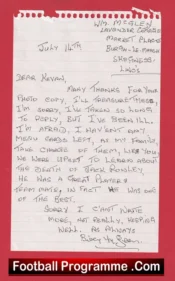 WM. McGLEN
LAVENDER COTTAGE
MARKET PLACE
BURGH-LE-MARSH
SKEGNESS
LINCS
JULY 16TH
DEAR KEVAN,
MANY THANKS FOR YOUR
PHOTO COPY, I'LL TREASURE THESE,
I'M SORRY, I'VE TAKEN SO LONG
TO REPLY, BUT I'VE BEEN ILL.
I'M AFRAID, I HAV'ENT ANY
MENU CARDS LEFT, AS MY FAMILY,
TAKE CHARGE OF THEM, LIKE YOU
WE WERE UPSET TO LEARN ABOUT
THE DEATH OF JACK
HE WAS A GREAT PLAYER &
TEAM MATE, IN FACT HE WAS ONE
OF THE BEST.
SORRY I CAN'T WRITE
MORE, NOT REALLY, KEEPING
WELL. AS ALWAYS
Billy McGlen
Football Programme .Com